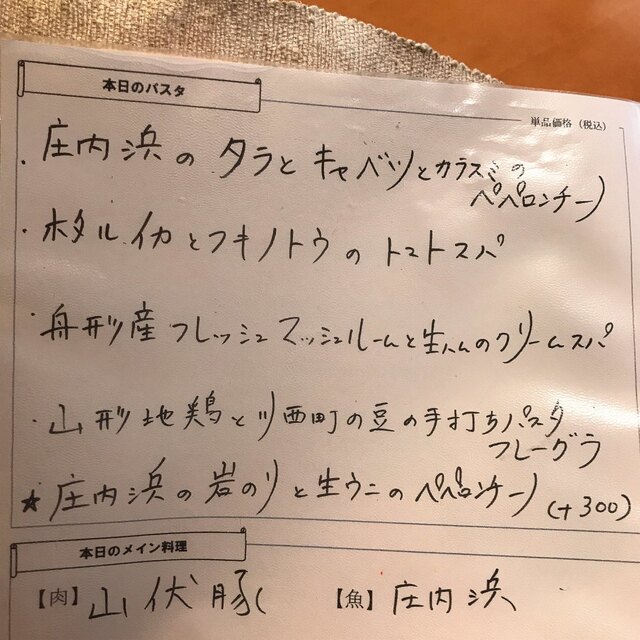 本日のパスタ
単品価格（税込）
・庄内浜の タラと キャベツとカラスミの
ペペロンチーノ
・ホタルイカとフキノトウの トマトスパ
・舟形産 フレッシュマッシュルームと生ハムのクリームスパ
・山形地鶏と川西町の豆の手打ちパスタ
フレーグラ
★庄内浜の岩のりと生ウニのペペロンチーノ (+300)
本日のメイン料理
【肉】山伏豚
【魚】庄内浜